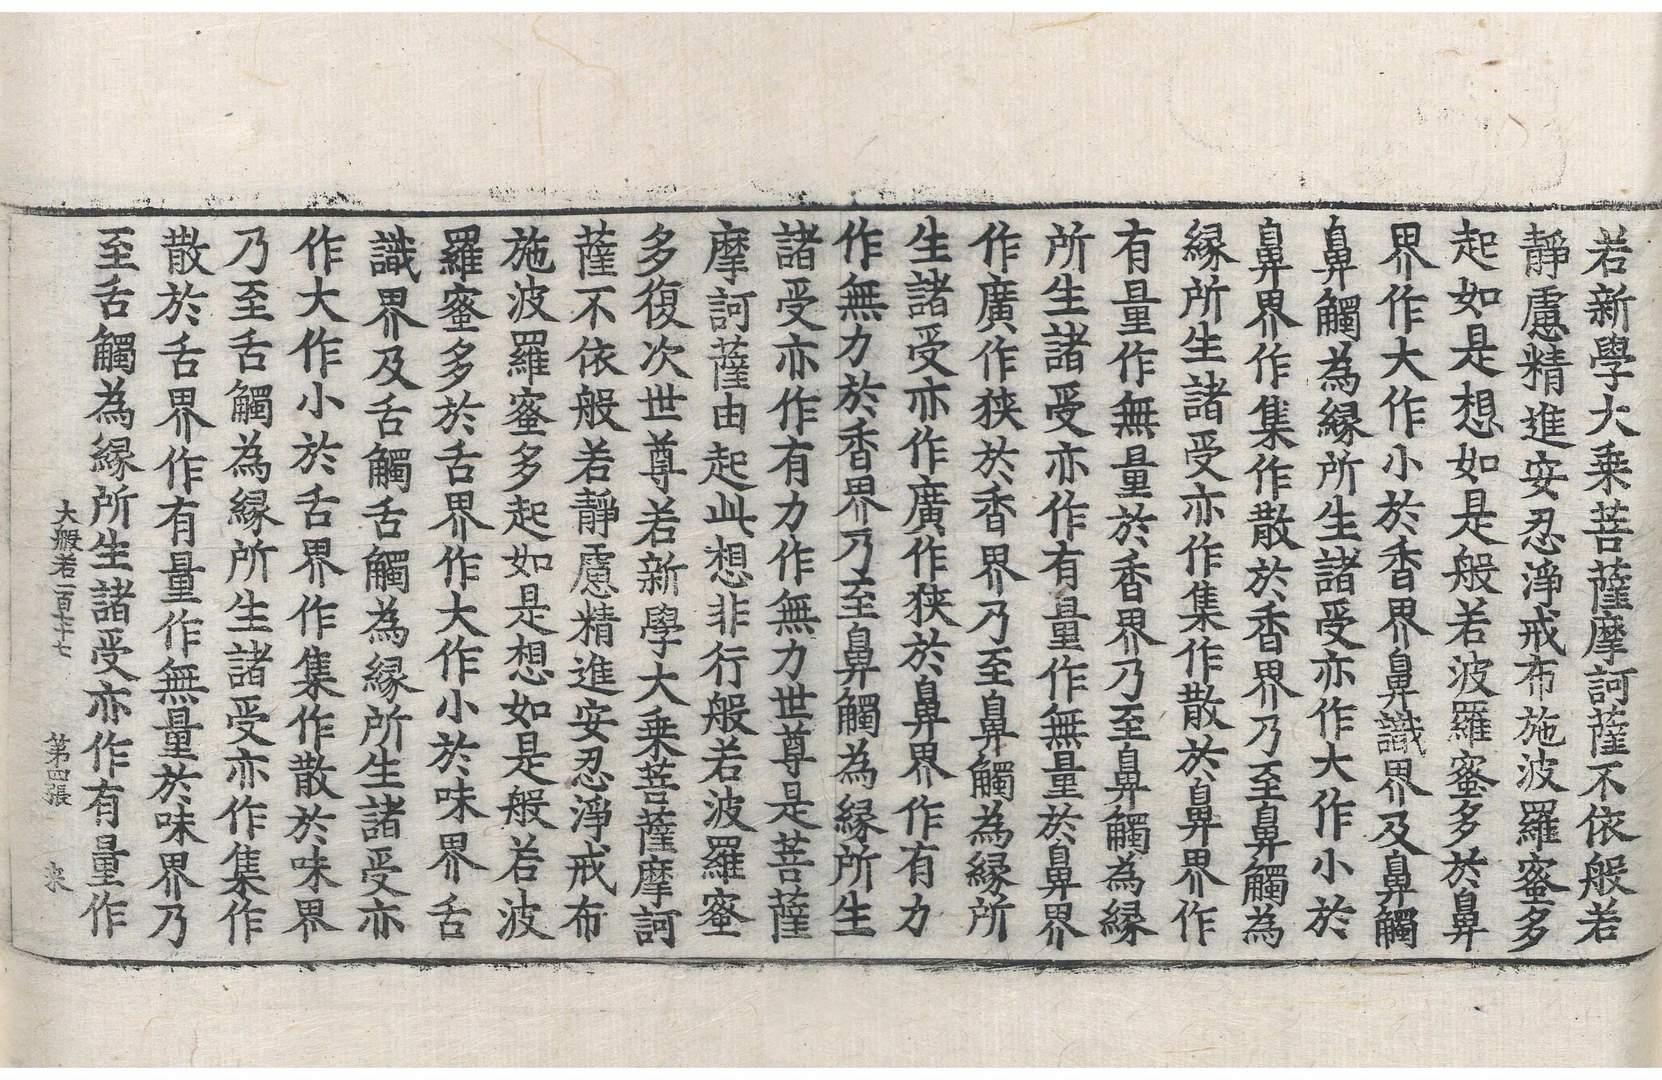 若新學大乗菩薩摩訶薩不依般若
靜慮精進安忍淨戒布施波羅蜜多
起如是想如是般若波羅蜜多於鼻
界作大作小於香界鼻識界及鼻觸
鼻觸為縁所生諸受亦作大作小於
鼻界作集作散於香界乃至鼻觸為
縁所生諸受亦作集作散於鼻界作
有量作無量於香界乃至鼻觸為縁
所生諸受亦作有量作無量於鼻界
作廣作狹於香界乃至鼻觸為縁所
生諸受亦作廣作狹於鼻界作有力
作無力於香界乃至鼻觸為縁所生
諸受亦作有力作無力世尊是菩薩
摩訶薩由起此想非行般若波羅蜜
多復次世尊若新學大乗菩薩摩訶
薩不依般若靜慮精進安忍淨戒布
施波羅蜜多起如是想如是般若波
羅蜜多於舌界作大作小於味界舌
識界及舌觸舌觸為縁所生諸受亦
作大作小於舌界作集作散於味界
乃至舌觸為縁所生諸受亦作集作
散於舌界作有量作無量於味界乃
至舌觸為縁所生諸受亦作有量作
大般若一百七十七 第四張 来